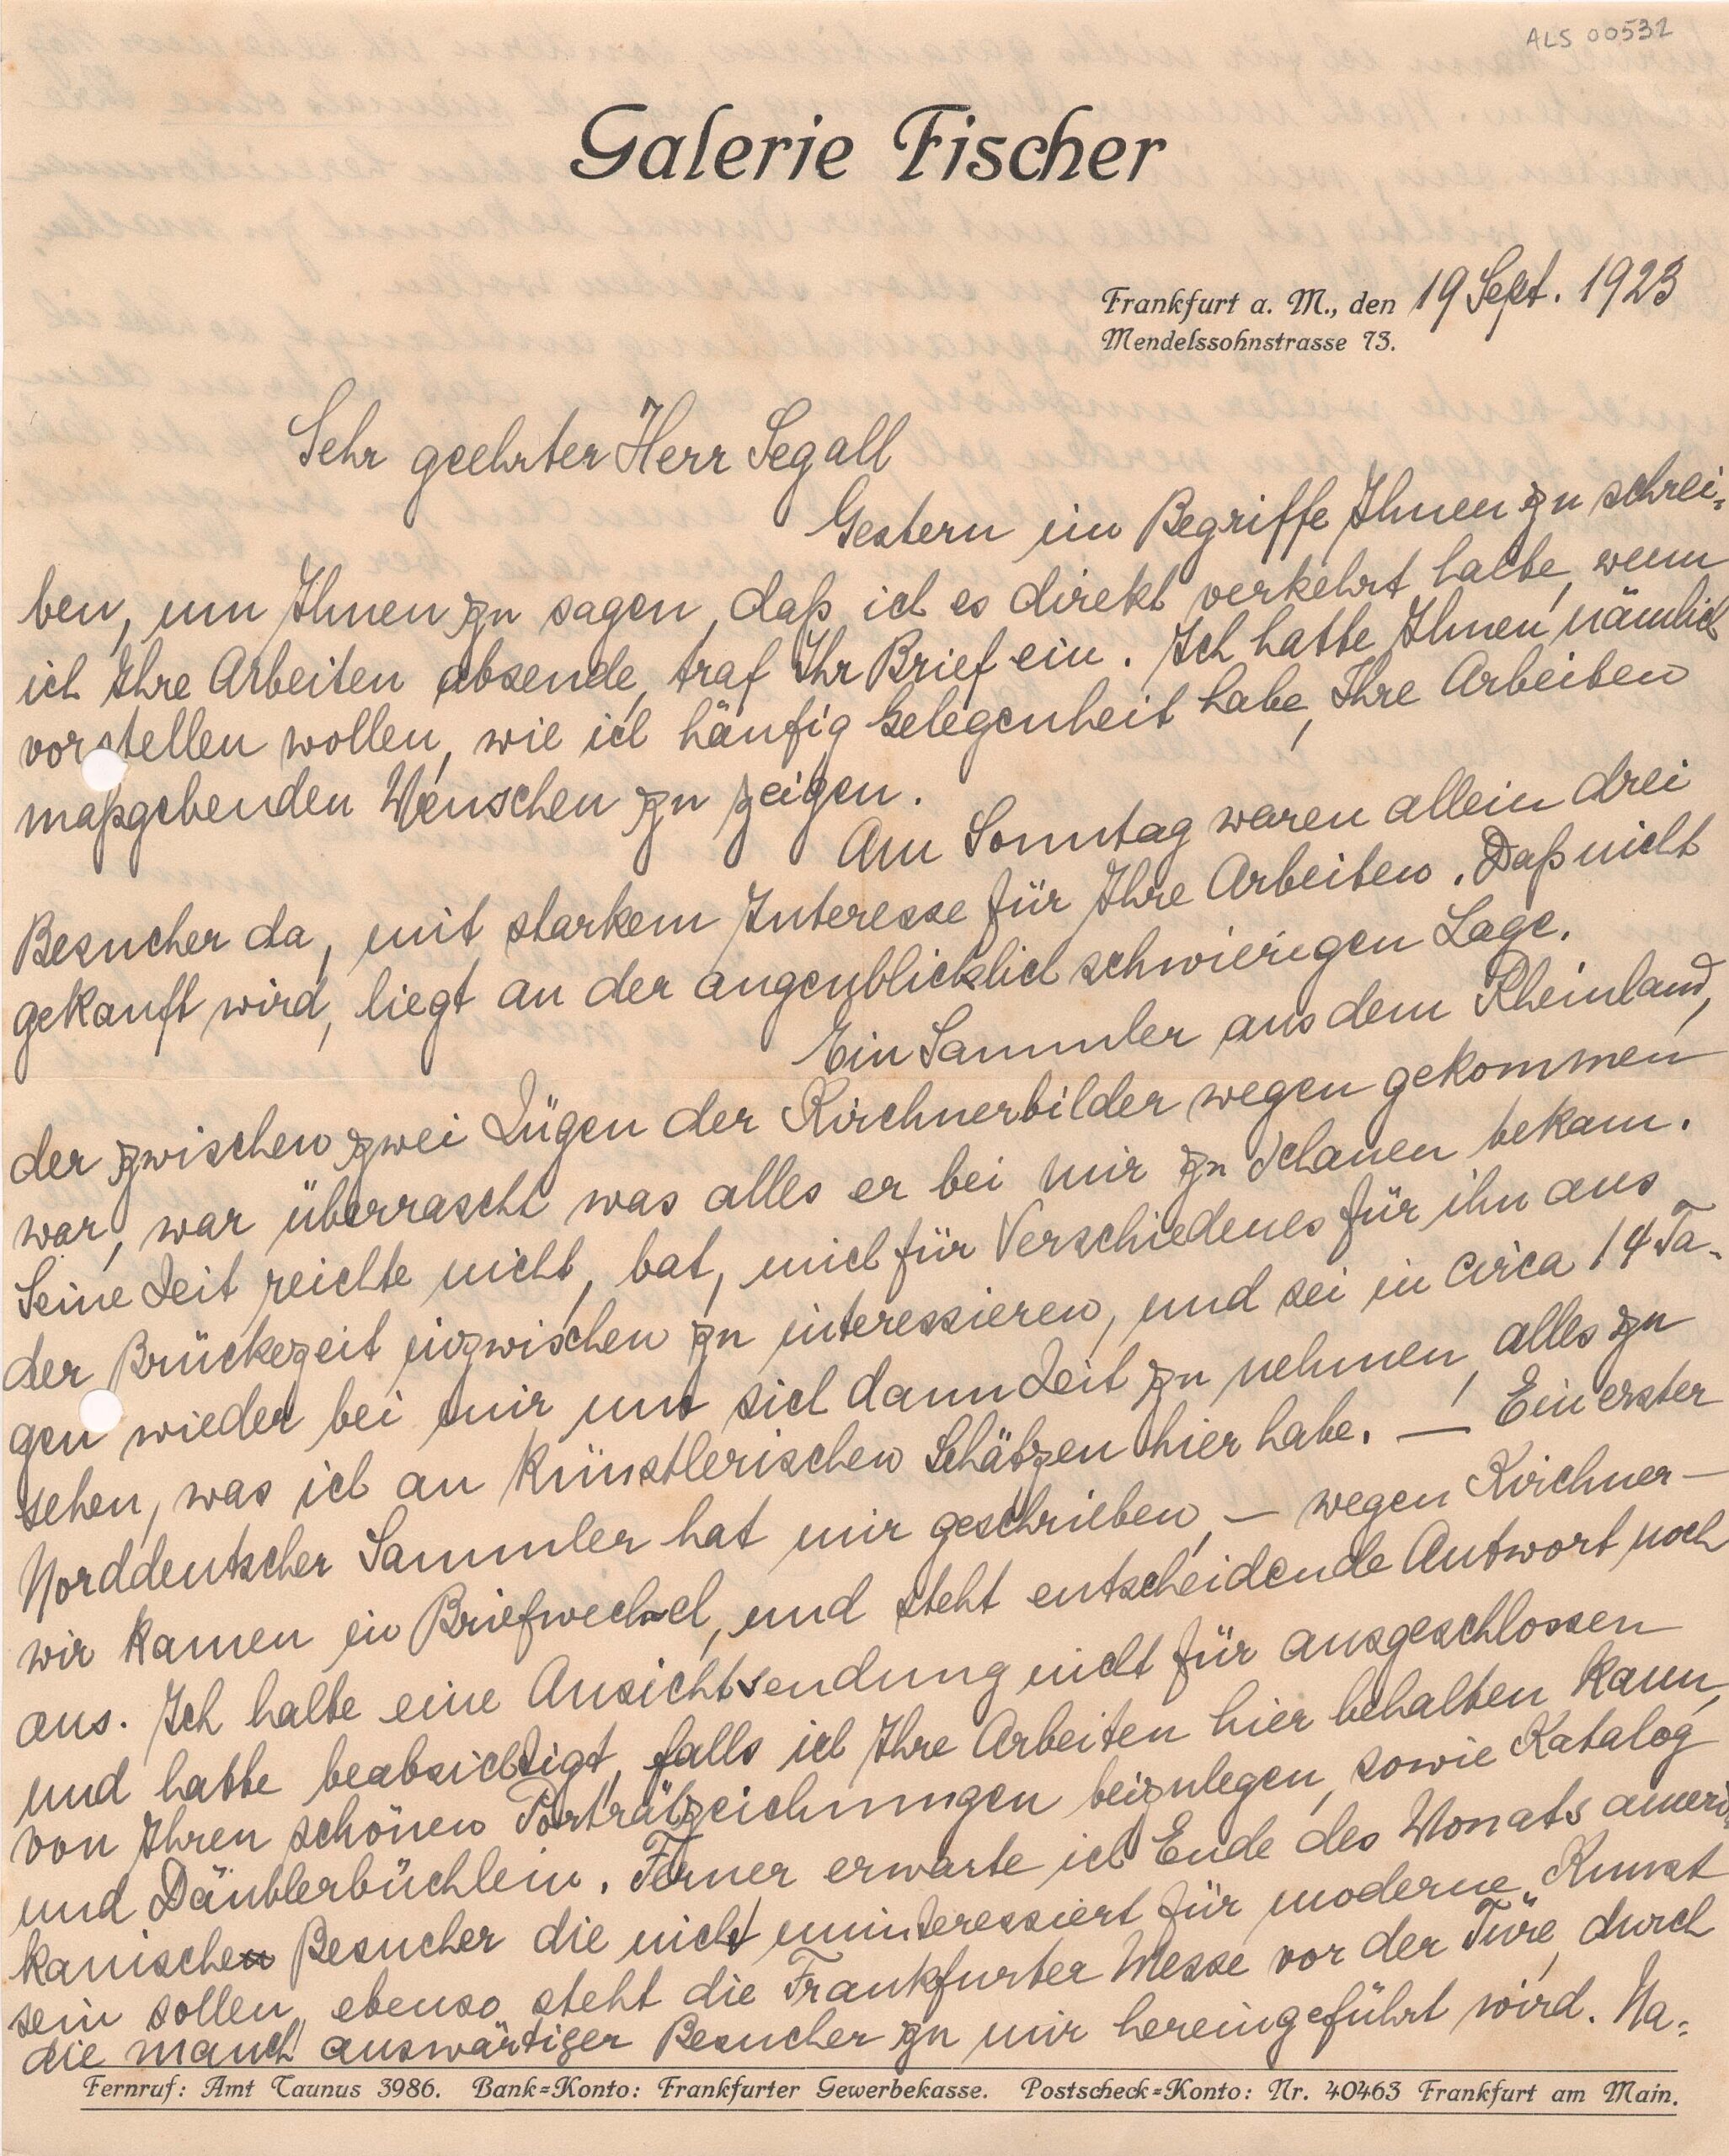 ALS 00532
Galerie Fischer
Frankfurt a. M., den 19 Sept. 1923
Mendelssohnstrasse 73.
Sehr geehrter Herr Segall
Gestern im Begriffe Ihnen zu schrei-
ben, um Ihnen zu sagen, daß ich es direkt verkehrt halte, wenn
ich Ihre Arbeiten absende, traf Ihr Brief ein. Ich hatte Ihnen nämlich
vorstellen wollen, wie ich häufig Gelegenheit habe, Ihre Arbeiten
maßgebenden Menschen zu zeigen.
Am Sonntag waren allein drei
Besucher da, mit starkem Interesse für Ihre Arbeiten. Daß nicht
gekauft wird, liegt an der augenblicklich schwierigen Lage.
Ein Sammler aus dem Rheinland,
der zwischen zwei Zügen der Kirchnerbilder wegen gekommen
war, war überrascht was alles er bei mir zu schauen bekam.
Seine Zeit reichte nicht, bat, mich für Verschiedenes für ihn aus
der Brückezeit inzwischen zu interessieren, und sei in circa 14 Ta-
gen wieder bei mir um sich dann Zeit zu nehmen, alles zu
sehen, was ich an künstlerischen Schätzen hier habe. — Ein erster
Norddeutscher Sammler hat mir geschrieben, — wegen Kirchner —
wir kamen in Briefwechsel, und steht entscheidende Antwort noch
aus. Ich halte eine Ansichtsendung nicht für ausgeschlossen
und hatte beabsichtigt, falls ich Ihre Arbeiten hier behalten kann,
von Ihren schönen Porträtzeichnungen beizulegen, sowie Katalog
und Däublerbüchlein. Ferner erwarte ich Ende des Monats ameri-
kanische Besucher die nicht uninteressiert für moderne Kunst
sein sollen, ebenso steht die Frankfurter Messe vor der Türe, durch
die manch auswärtiger Besucher zu mir hereingeführt wird. Na-
Fernruf: Amt Taunus 3986. Bank-Konto: Frankfurter Gewerbekasse. Postscheck-Konto: Nr. 40463 Frankfurt am Main.